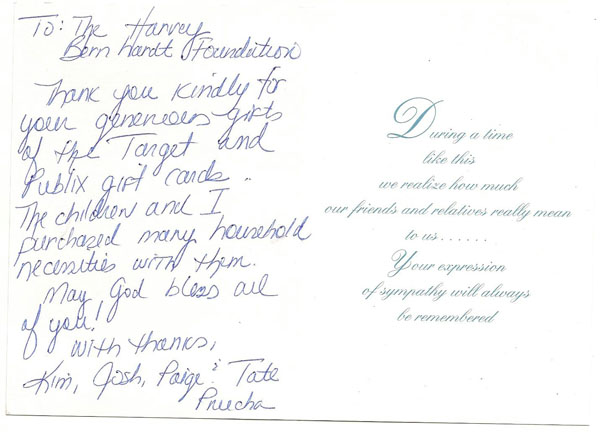 To: The Harvey
Bernhardt Foundation
Thank you kindly for
your generous gifts
of the Target and
Publix gift cards..
The children and I
purchased many household
necessities with them.
May God bless all
of you!
With thanks,
Kim, Josh, Paige & Tate
Pruecha
During a time
like this
we realize how much
our friends and relatives really mean
to us......
Your expression
of sympathy will always
be remembered